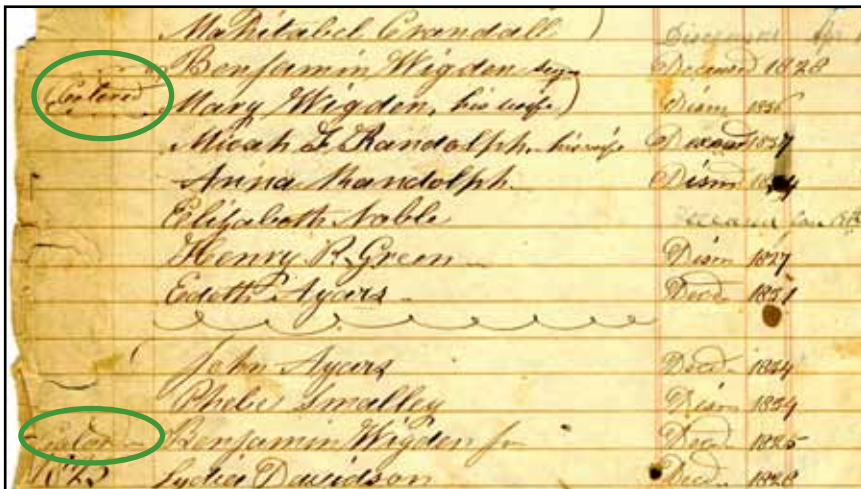 Mahitabel Crandall )
Benjamin Wigden Deceased 1828
Colored Mary Wigden, his wife ) Dism 1836
Micah F. Randolph his wife 1837
Anna Randolph Dism
Elizabeth Noble
Henry R. Green Dism 1827
Edeth Ayars Decd 1831
John Ayars Decd 1834
Phebe Smalley Dism 1834
Colored Benjamin Wigden jr Decd 1825
Lydia Davidson Decd 1828